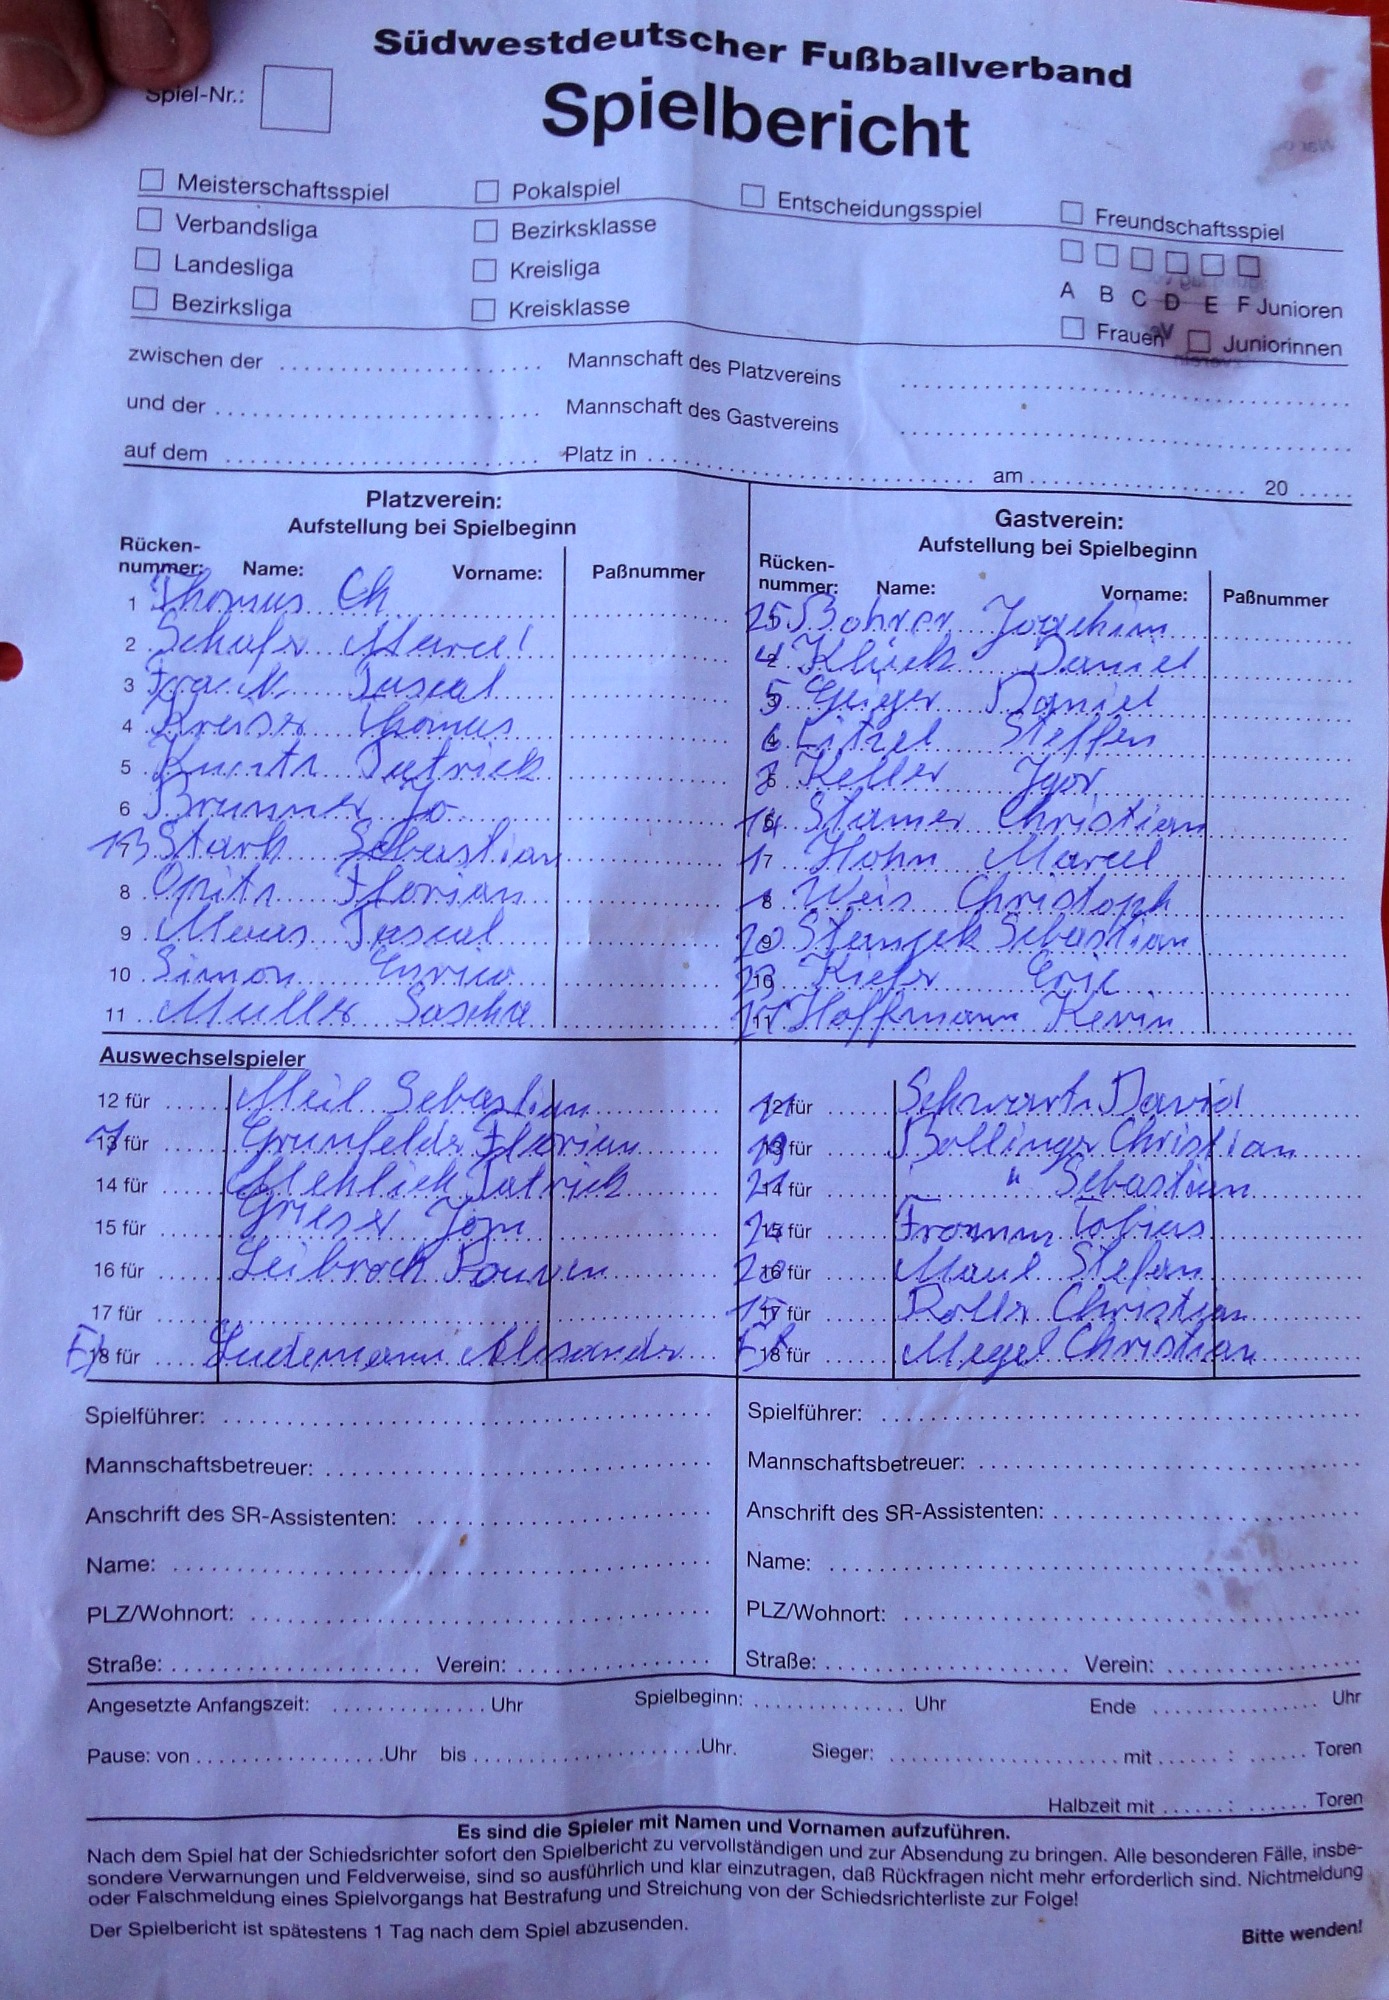 Südwestdeutscher Fußballverband
Spiel-Nr.:
Spielbericht
Meisterschaftsspiel Pokalspiel Entscheidungsspiel Freundschaftsspiel
Verbandsliga Bezirksklasse
Landesliga Kreisliga
A B C D E F Junioren
Bezirksliga Kreisklasse
Frauen Juniorinnen
zwischen der Mannschaft des Platzvereins
und der Mannschaft des Gastvereins
auf dem Platz in am 20
Platzverein:
Aufstellung bei Spielbeginn
Rücken-
nummer: Name: Vorname: Paßnummer
1 Thomas Ch
2 Schäfer Marcel
3 Pascal
4 Kreiser Thomas
5 Kuntz Patrick
6 Brunner Jo
13 7 Stark Sebastian
8 Opitz Florian
9 Maas Pascal
10 Simon Enrico
11 Müller Sascha
Gastverein:
Aufstellung bei Spielbeginn
Rücken-
nummer: Name: Vorname: Paßnummer
25 Bohrer Joachim
4 Klück Daniel
5 Geiger Daniel
6 Litzel Steffen
Keller Igor
14 Stamer Christian
17 Hohn Marcel
8 Weis Christoph
9 Stanjek Sebastian
10 Kiefer Eric
11 Hoffmann Kevin
Auswechselspieler
12 für Meil Sebastian
13 für Grünfelder Florian
14 für Mehlick Patrick
15 für Grieser Jörn
16 für Leibrock Rouven
17 für
18 für Lüdemann Alexander
12 für Schwartz David
13 für Bollinger Christian
21 14 für " Sebastian
15 für Fromm Tobias
16 für Maul Stefan
15 17 für Roller Christian
18 für Megel Christian
Spielführer: Spielführer:
Mannschaftsbetreuer: Mannschaftsbetreuer:
Anschrift des SR-Assistenten: Anschrift des SR-Assistenten:
Name: Name:
PLZ/Wohnort: PLZ/Wohnort:
Straße: Verein: Straße: Verein:
Angesetzte Anfangszeit: Uhr Spielbeginn: Uhr Ende Uhr
Pause: von Uhr bis Uhr. Sieger: mit : Toren
Halbzeit mit : Toren
Es sind die Spieler mit Namen und Vornamen aufzuführen.
Nach dem Spiel hat der Schiedsrichter sofort den Spielbericht zu vervollständigen und zur Absendung zu bringen. Alle besonderen Fälle, insbe-
sondere Verwarnungen und Feldverweise, sind so ausführlich und klar einzutragen, daß Rückfragen nicht mehr erforderlich sind. Nichtmeldung
oder Falschmeldung eines Spielvorgangs hat Bestrafung und Streichung von der Schiedsrichterliste zur Folge!
Der Spielbericht ist spätestens 1 Tag nach dem Spiel abzusenden.
Bitte wenden!